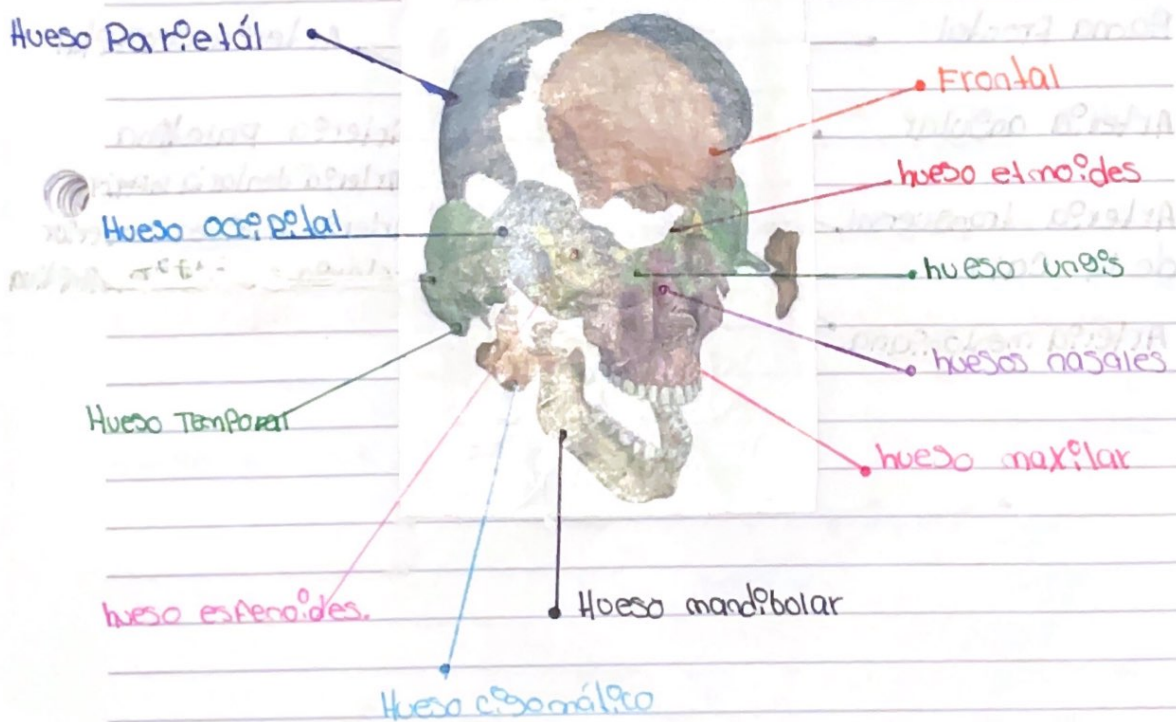 Hueso Parietál
Frontal
hueso etmoides
Hueso occipital
hueso ungis
huesos nasales
Hueso Temporal
hueso maxilar
hueso esfenoides.
Hueso mandibolar
Hueso cigomálico